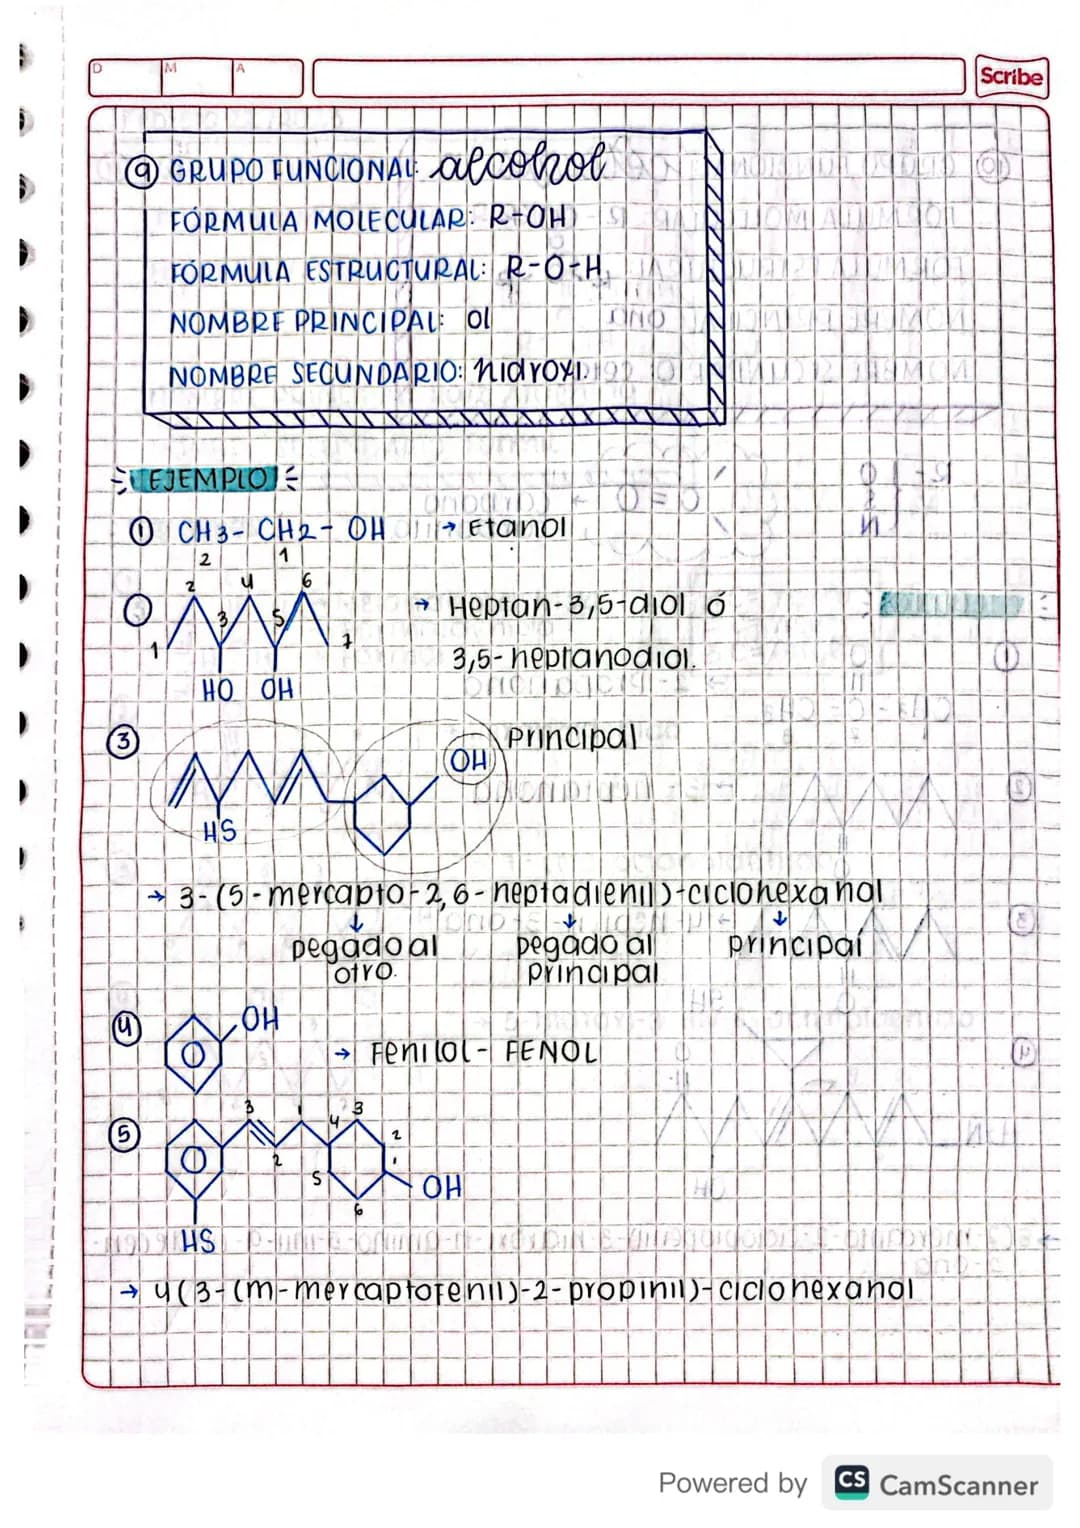 D M A
Scribe
9 GRUPO FUNCIONAL: alcohol
FÓRMULA MOLECULAR: R-OH
FÓRMULA ESTRUCTURAL: R-O-H
NOMBRE PRINCIPAL: ol
NOMBRE SECUNDARIO: hidroxi.
EJEMPLO
1 CH3- CH2- OH → Etanol
2 1
2 4 6
→ Heptan-3,5-diol ó
3 5
1 7
3,5-heptanodiol.
HO OH
3
Principal
OH
HS
→ 3-(5-mercapto-2,6-heptadienil)-ciclohexanol
↓ ↓ ↓
pegado al pegado al principal
otro. principal
4 OH
→ Fenilol- FENOL
5
3 1 4 3
2 2
5 1
6
OH
HS
→ 4(3-(m-mercaptofenil)-2-propinil)-ciclohexanol
Powered by CS CamScanner